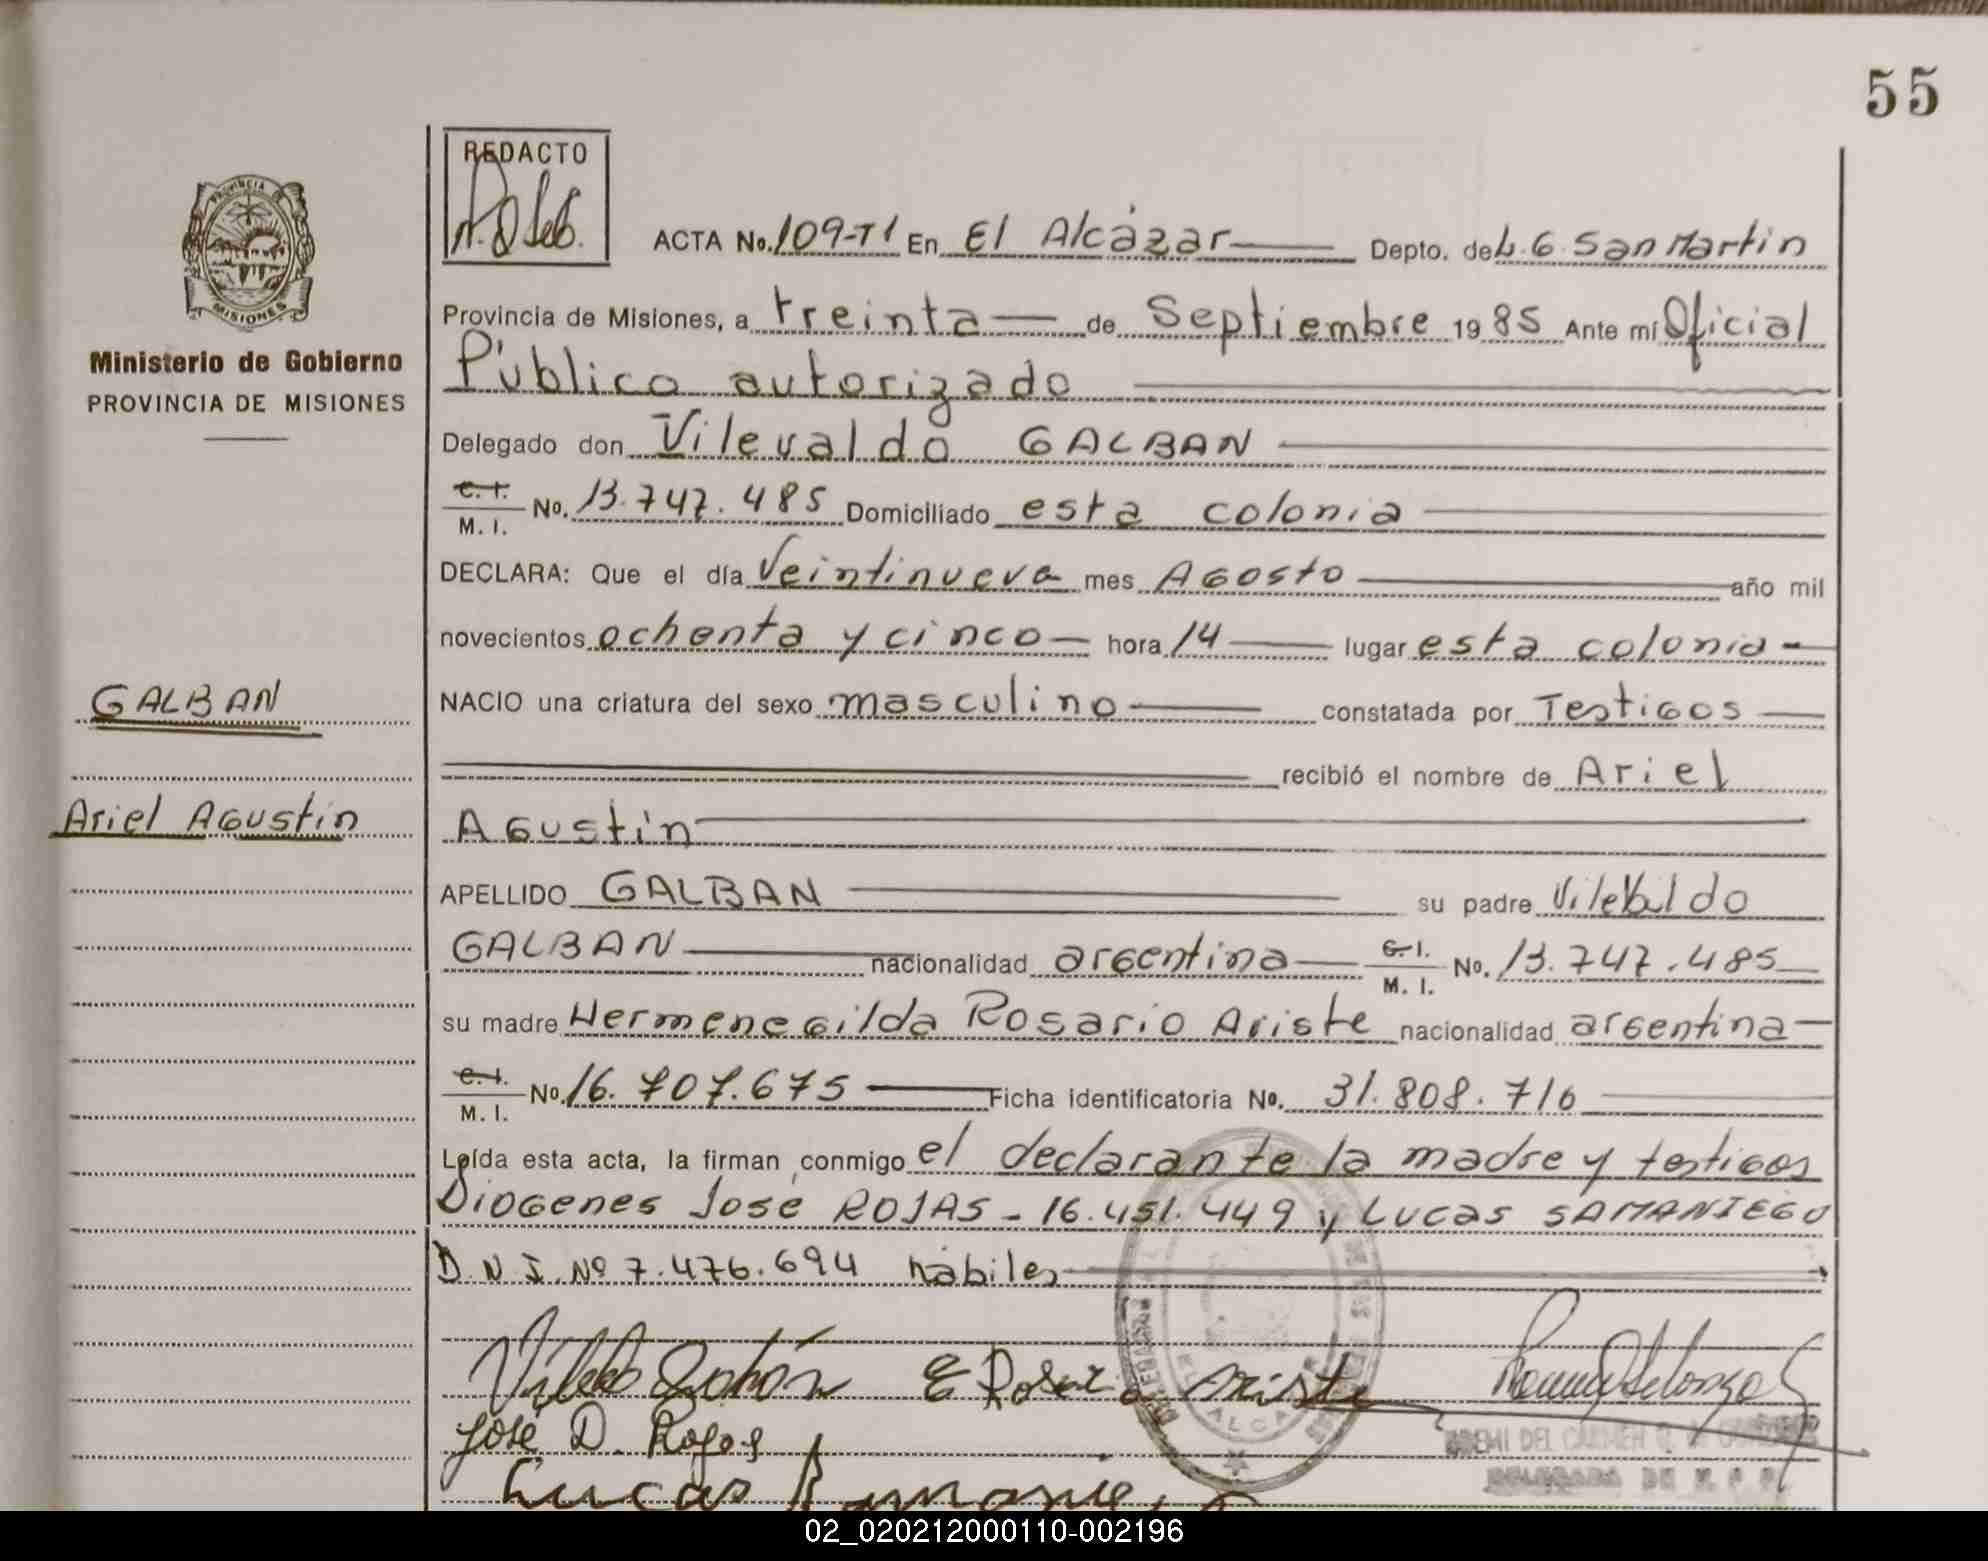 55
REDACTO
PROVINCIA DE
MISIONES
Ministerio de Gobierno
PROVINCIA DE MISIONES
ACTA No. 109-T1 En El Alcázar Depto. de L. G. San Martin
Provincia de Misiones, a treinta de Septiembre 1985 Ante mí Oficial
Público autorizado
Delegado don Vilevaldo GALBAN
C. I. M. I. No. 13.747.485 Domiciliado esta colonia
DECLARA: Que el día Veintinueve mes AGosto año mil
novecientos ochenta y cinco hora 14 lugar esta colonia
GALBAN
NACIO una criatura del sexo masculino constatada por TestiGos
recibió el nombre de Ariel
Ariel AGustín
AGustín
APELLIDO GALBAN su padre Vilevaldo
GALBAN nacionalidad arGentina C. I. M. I. No. 13.747.485
su madre HermeneGilda Rosario Ariste nacionalidad arGentina
C. I. M. I. No. 16.707.675 Ficha identificatoria No. 31.808.716
Leída esta acta, la firman conmigo el declarante la madre y testiGos
DioGenes José ROJAS - 16.451.449 y Lucas SAMANIEGO
D.N.I. Nº 7.476.694 hábiles
E Rosario Ariste
José D. Rojas
Lucas
DEL CARMEN
DELEGADA DE
02_020212000110-002196